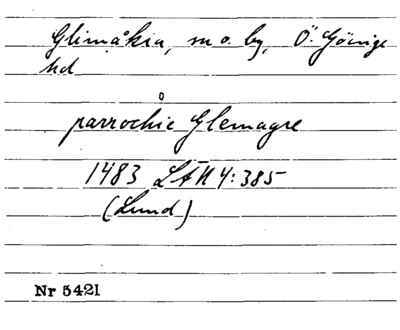 Glimåkra, sn o. by, Ö. Göinge
hd
parrochie Glemagre
1483 LÄU 4:385
(Lund)
Nr 5421